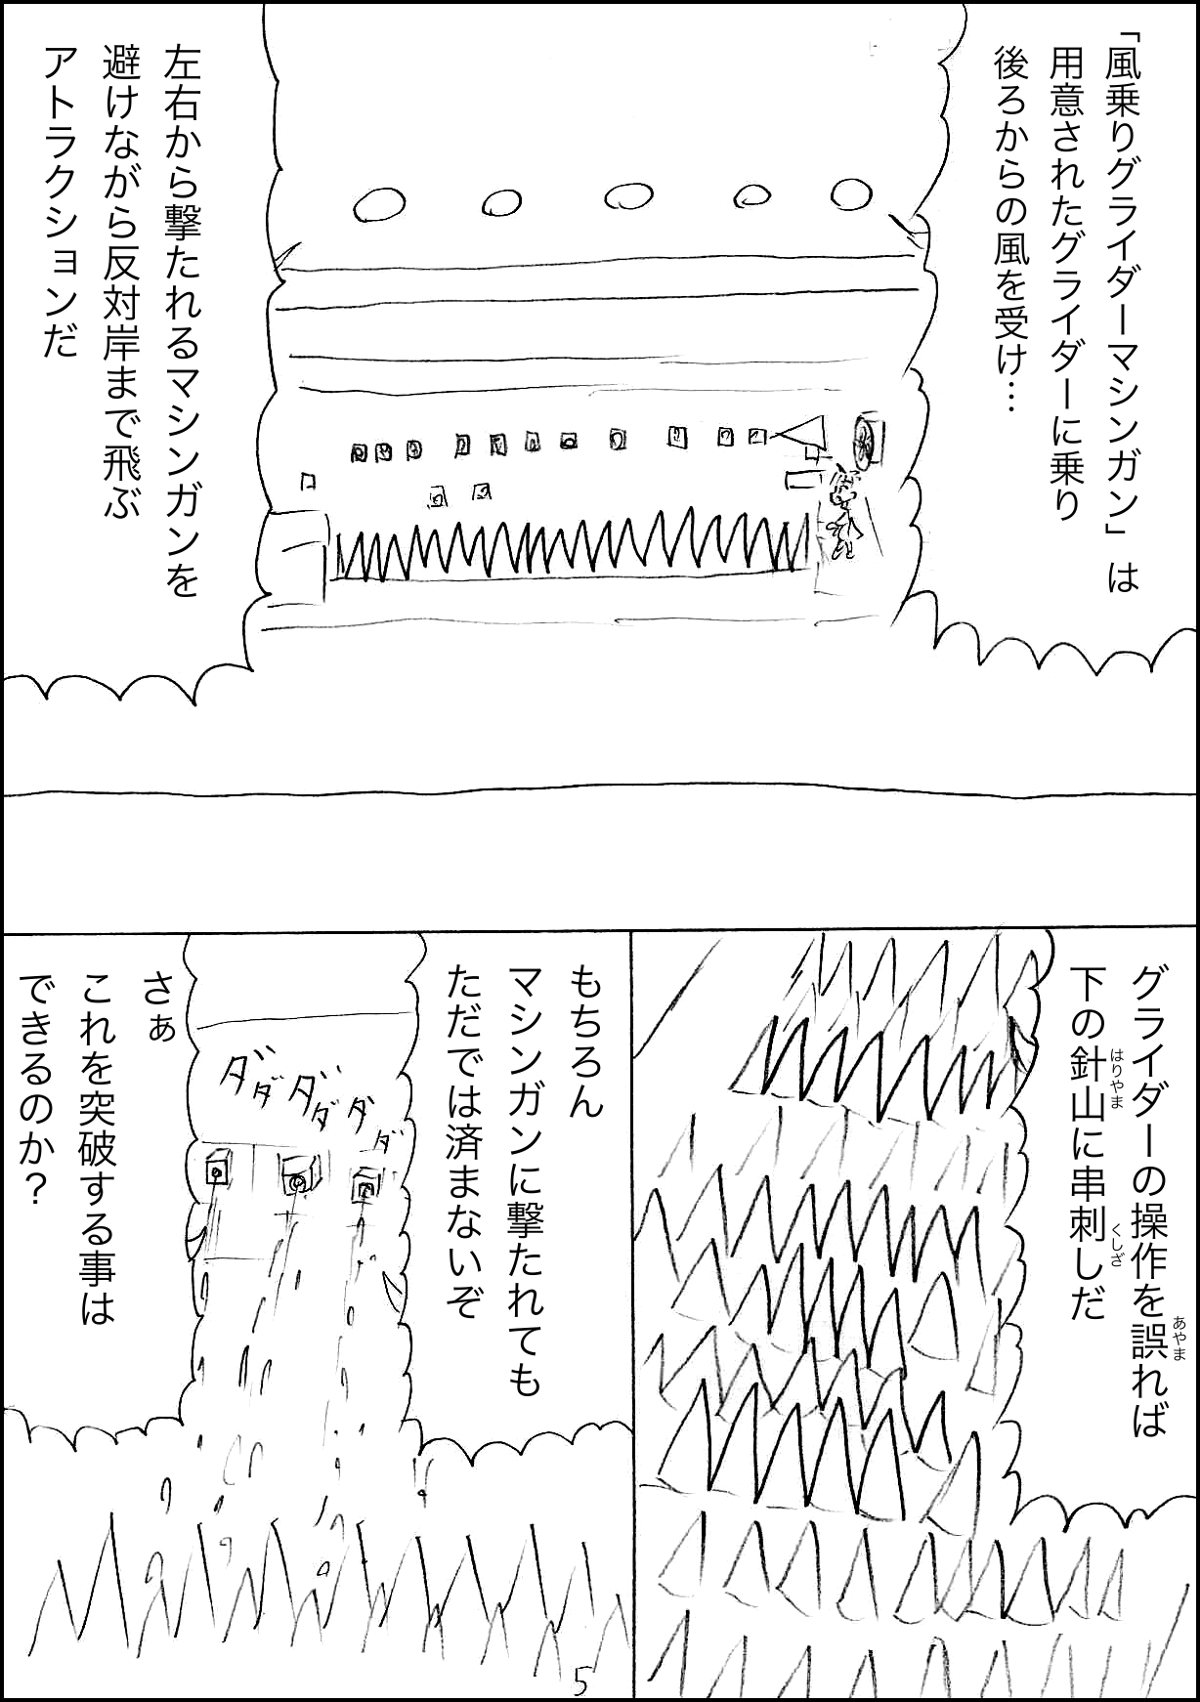 「風乗りグライダーマシンガン」は
用意されたグライダーに乗り
後ろからの風を受け…
左右から撃たれるマシンガンを
避けながら反対岸まで飛ぶ
アトラクションだ
グライダーの操作を誤れば
あやま
下の針山に串刺しだ
はりやま
くしざ
もちろん
マシンガンに撃たれても
ただでは済まないぞ
ダダダダダダ
さぁ
これを突破する事は
できるのか？
5